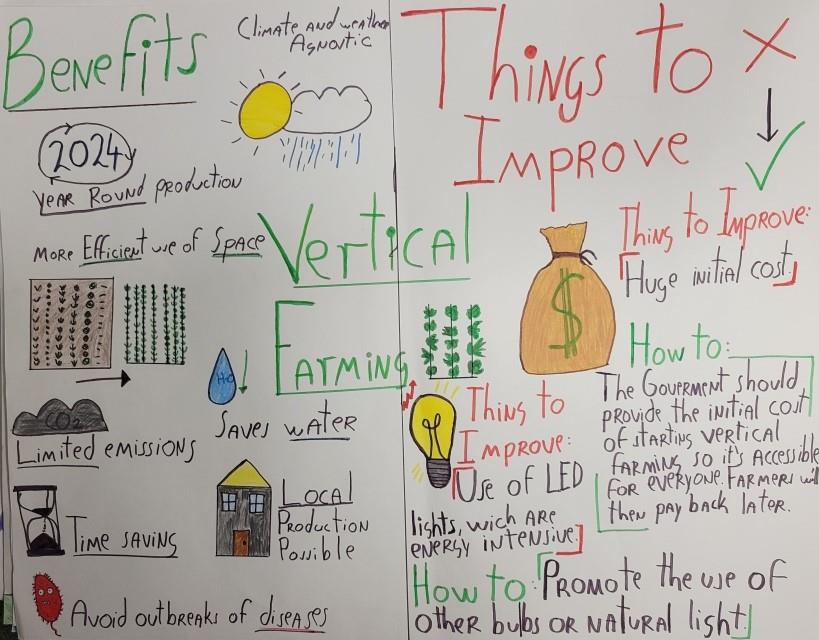 Benefits
Climate and weather
Agnostic
2024
year Round production
More Efficient use of Space
CO2
Limited emissions
Time saving
Avoid outbreaks of diseases
H2O
Saves water
Local
Production
Possible
Vertical
Farming
Things to
Improve
Thing to Improve:
Huge initial cost
$
How to:
The Goverment should
provide the initial cost
of starting vertical
farming so it's accessible
for everyone. Farmers will
then pay back later.
Thing to
Improve:
Use of LED
lights, wich are
energy intensive.
How to: Promote the use of
other bulbs or natural light.